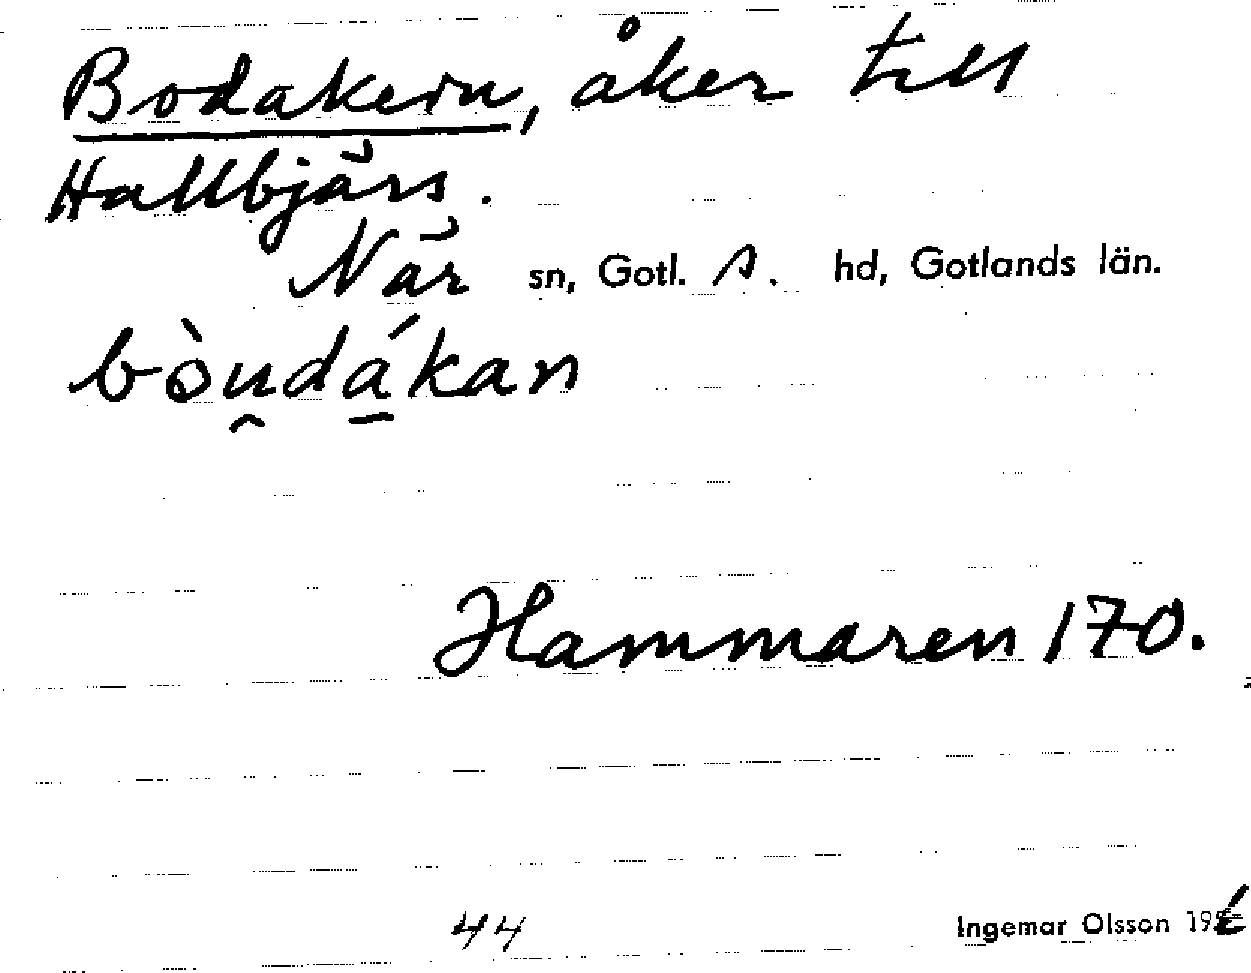 Bodakern, åker till
Hallbjärs.
När sn, Gotl. S. hd, Gotlands län.
bòu̯dá̱kan
Hammaren 170.
44 Ingemar Olsson